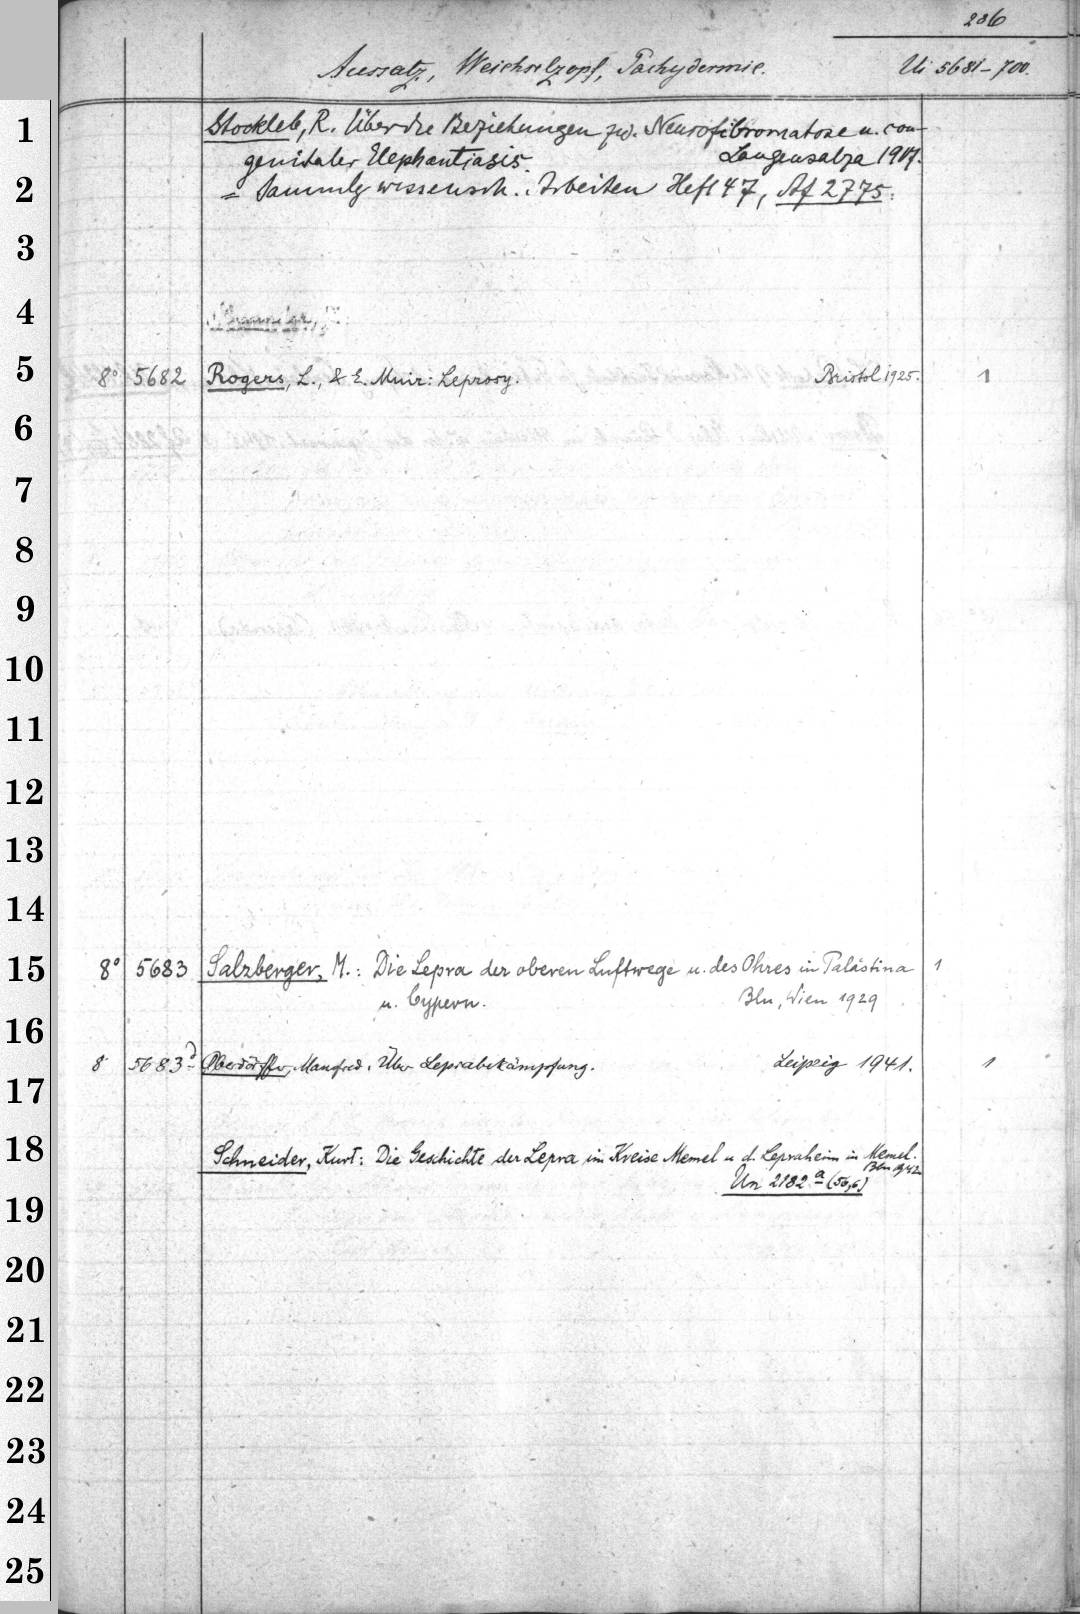 206
Aussatz, Weichselzopf, Pachydermie. Ui 5681-700.
1
Stockleb, R. Über die Beziehungen zw. Neurofibromatose u. con-
genitaler Elephantiasis. Langensalza 1917.
2
= Sammlg wissensch. Arbeiten Heft 47, Af 2775.
3
4
5
8° 5682 Rogers, L., & E. Muir: Leprosy. Bristol 1925. 1
6
7
8
9
10
11
12
13
14
15
8° 5683 Salzberger, M.: Die Lepra der oberen Luftwege u. des Ohres in Palästina 1
u. Cypern. Bln, Wien 1929
16
8 5683 Oberdörffer, Manfred. Über Leprabekämpfung. Leipzig 1941. 1
17
18
Schneider, Kurt: Die Geschichte der Lepra im Kreise Memel u. d. Lepraheim in Memel.
Bln 1942
Un 2182 a (50,6)
19
20
21
22
23
24
25